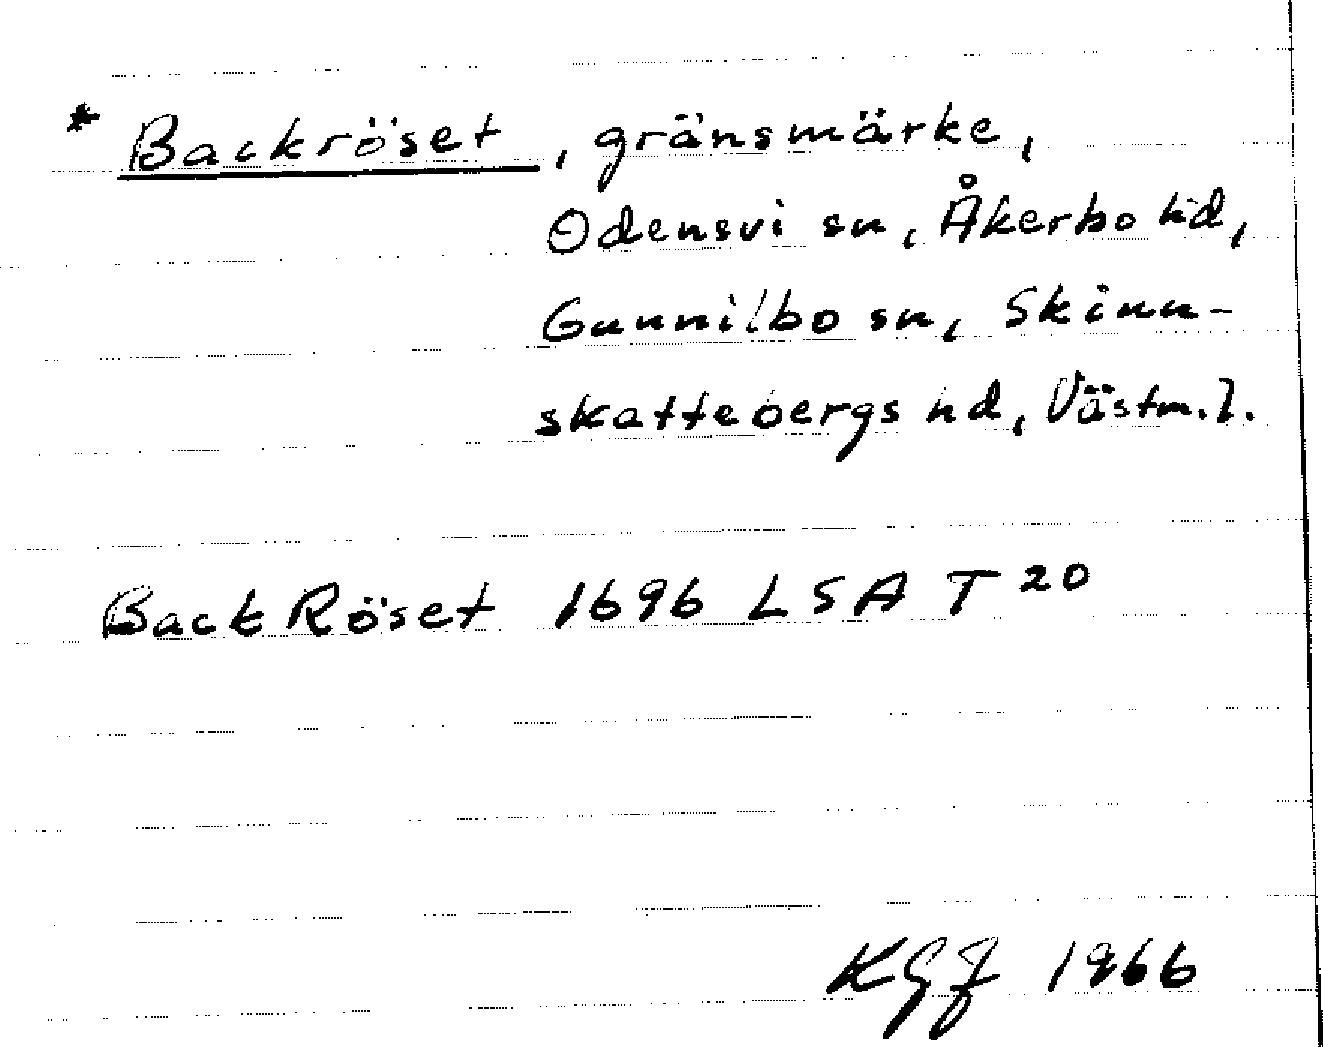 * Backröset, gränsmärke,
Odensvi sn, Åkerbo hd,
Gunnilbo sn, Skinn-
skattebergs hd, Västm.l.
Back Röset 1696 LSA T 20
KGJ 1966